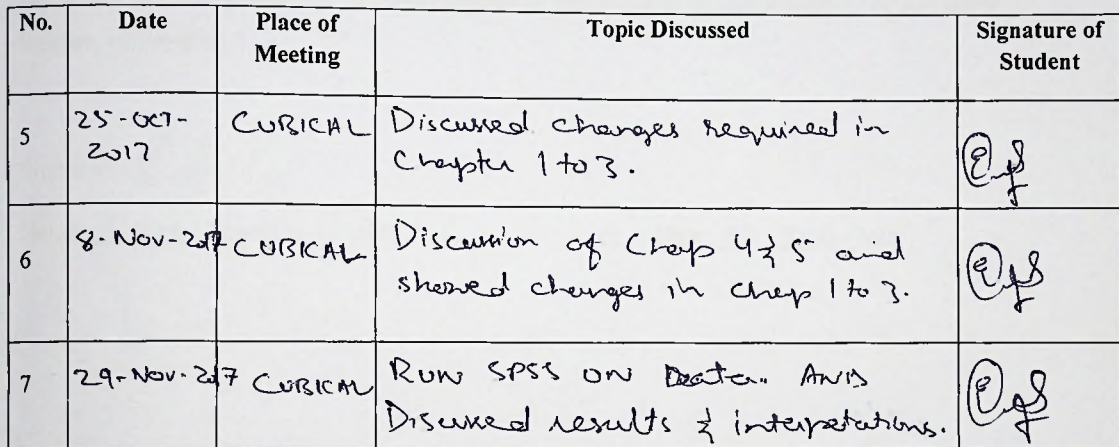 No. Date Place of Topic Discussed Signature of
Meeting Student
5 25-OCT- CUBICAL Discussed changes required in
2017 Chapter 1 to 3.
6 8-Nov-2017 CUBICAL Discussion of Chap 4 & 5 and
showed changes in chap 1 to 3.
7 29-Nov-2017 CUBICAL RUN SPSS ON Data. AND
Discussed results & interpetations.